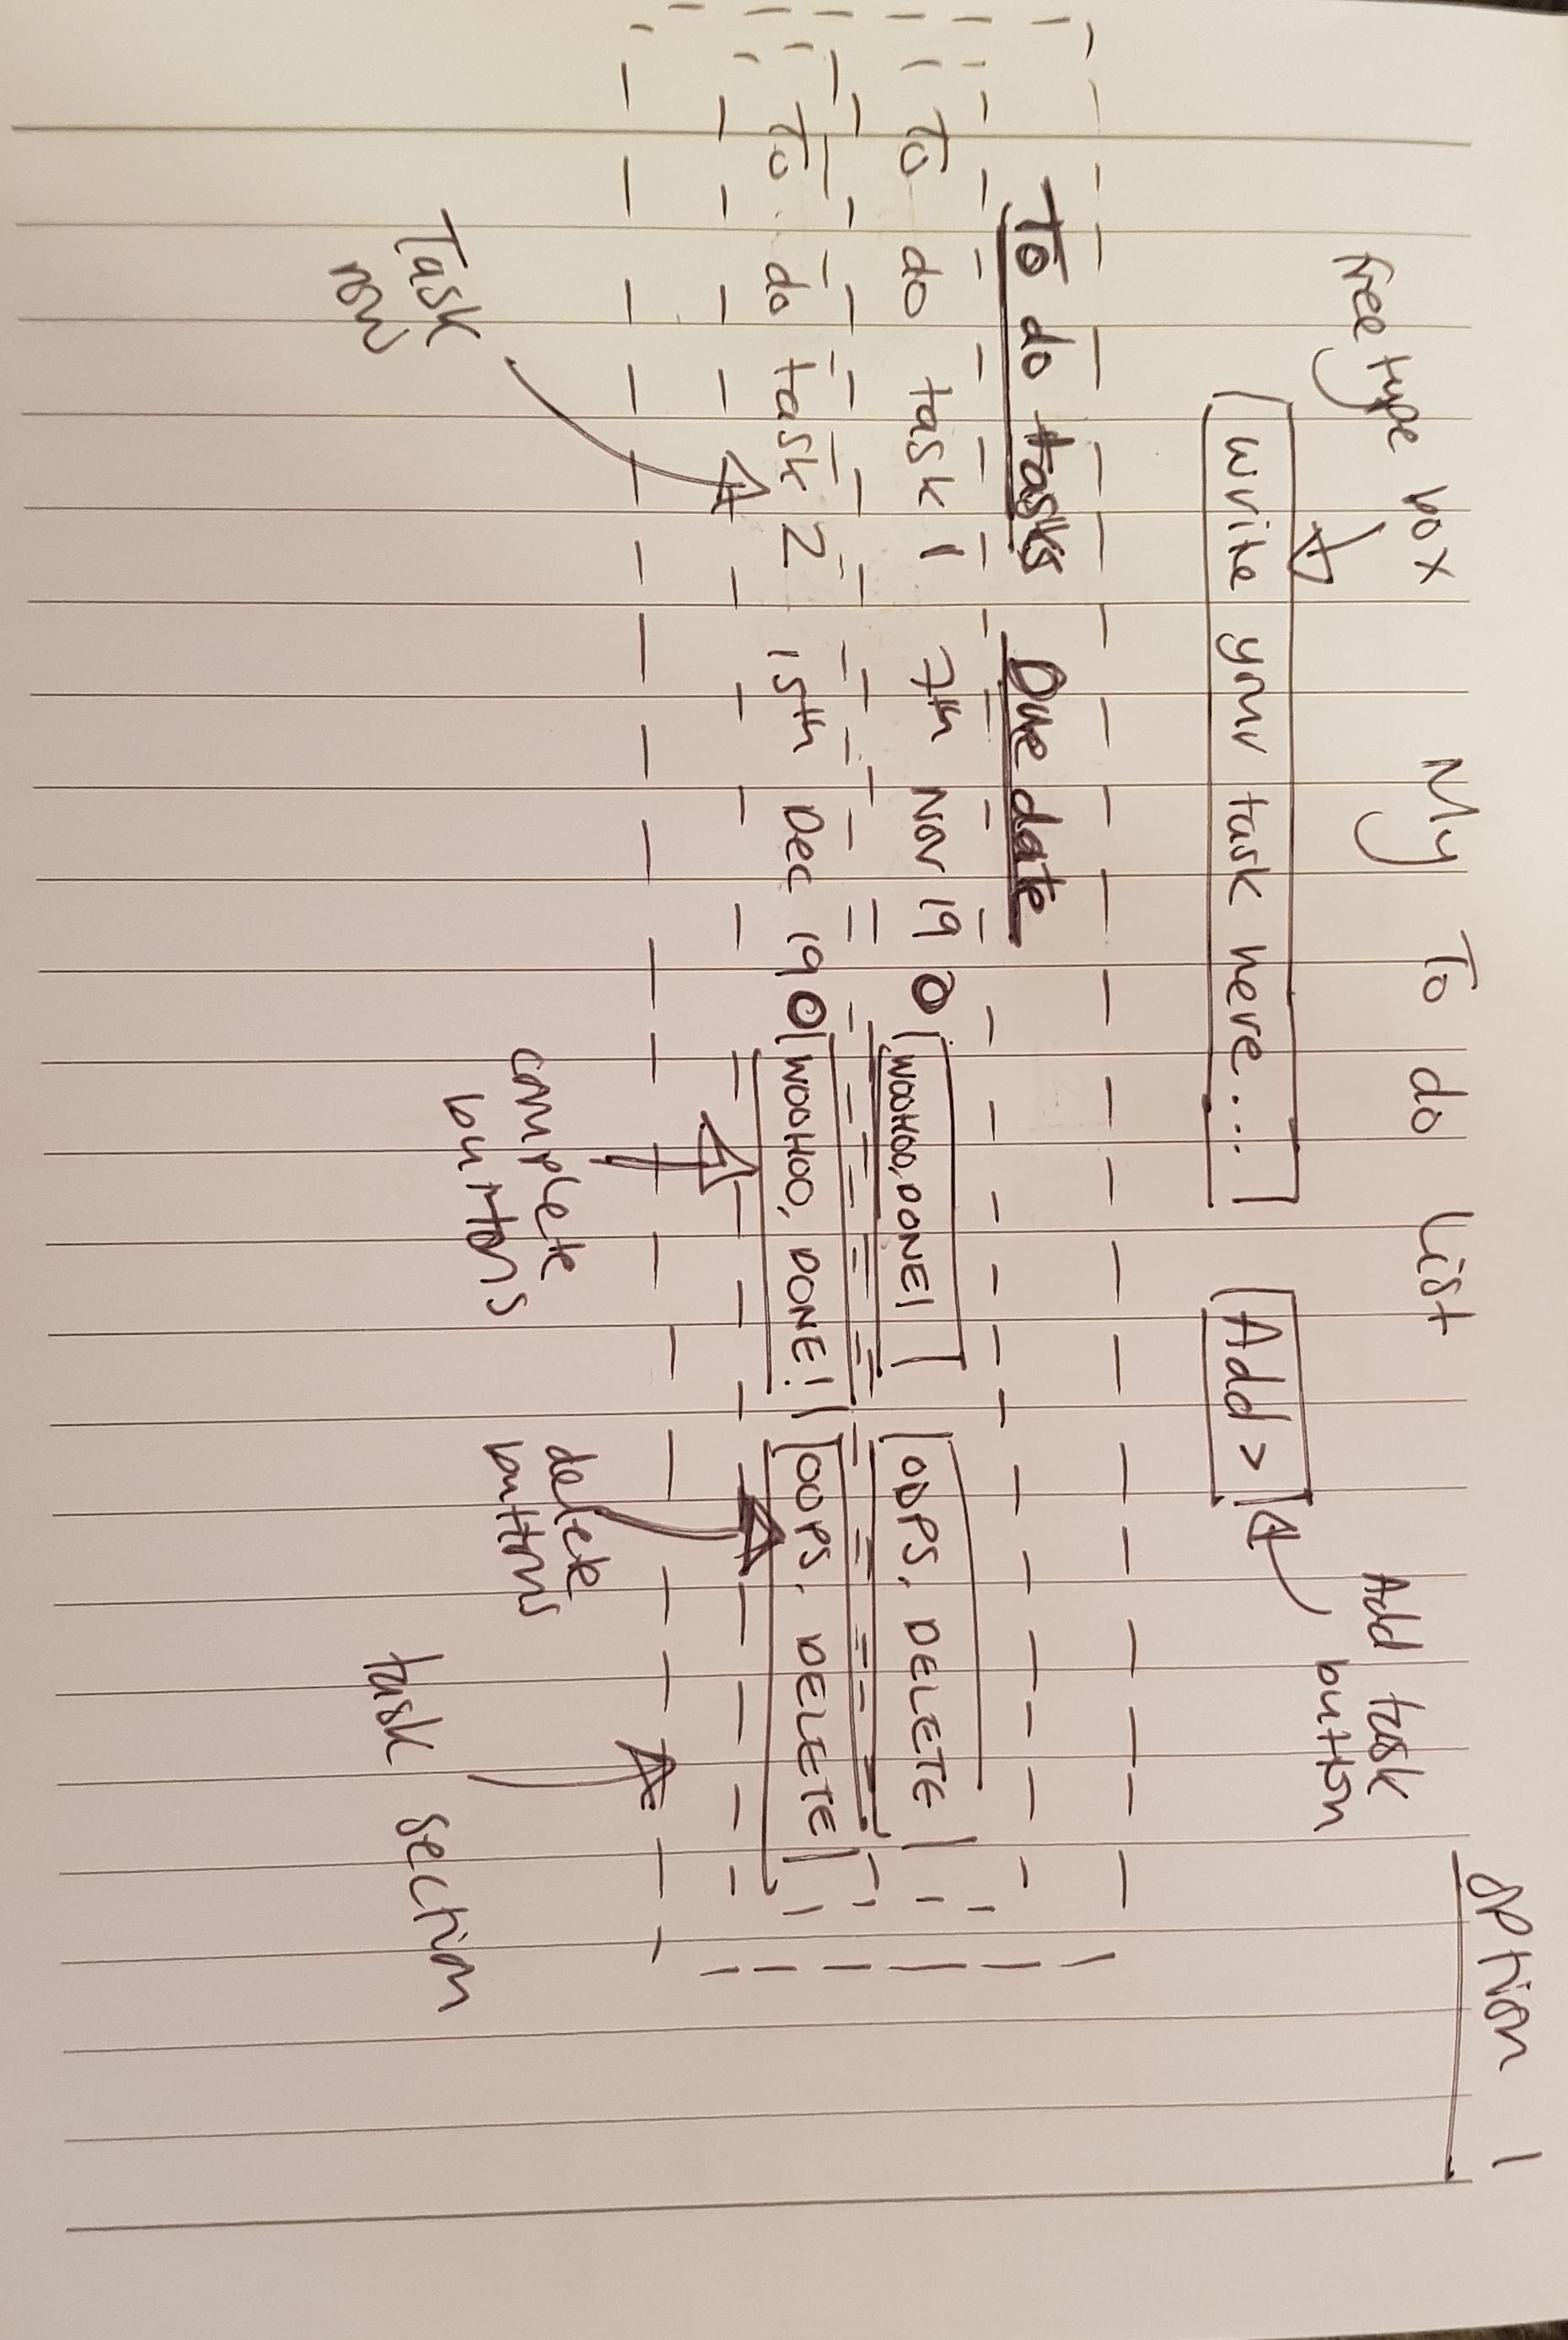 Option 1
My To do List
free type box
Add task
button
Write your task here...
Add >
To do tasks Due date
To do task 1 7th Nov 19 WOOHOO, DONE! OOPS, DELETE
To do task 2 15th Dec 19 WOOHOO, DONE! OOPS, DELETE
Task
row
complete
buttons
delete
buttons
task section